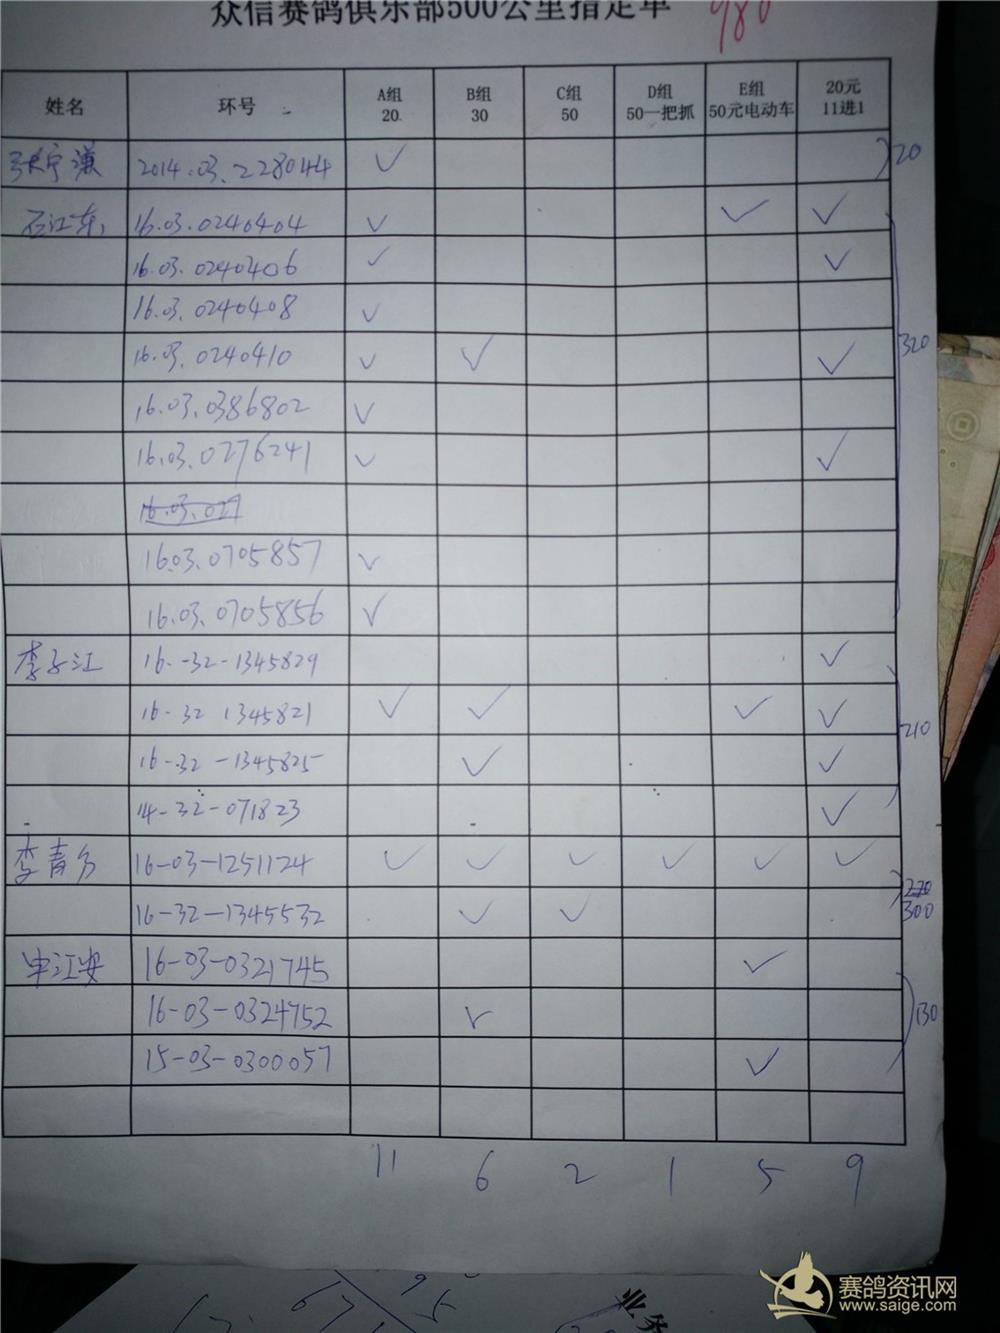 众信赛鸽俱乐部500公里指定单 980
姓名 环号 A组 20 B组 30 C组 50 D组 50一把抓 E组 50元电动车 20元 11进1
2014.03.2228044 ✓ 20
石江东 16.03.0240404 ✓ ✓ ✓
16.03.0240406 ✓ ✓
16.03.0240408 ✓
16.03.0240410 ✓ ✓ ✓ 320
16.03.0386802 ✓
16.03.0276241 ✓ ✓
16.03.027
16.03.0705857 ✓
16.03.0705856 ✓
李子江 16-32-1345829 ✓
16-32 1345821 ✓ ✓ ✓ ✓ 210
16-32-1345825 ✓ ✓
14-32-071823 ✓
李青 16-03-1251124 ✓ ✓ ✓ ✓ ✓ ✓
16-32-1345532 ✓ ✓ 300
申江安 16-03-0321745 ✓
16-03-0324752 ✓ 130
15-03-0300057 ✓
11 6 2 1 5 9
赛鸽资讯网
www.saige.com